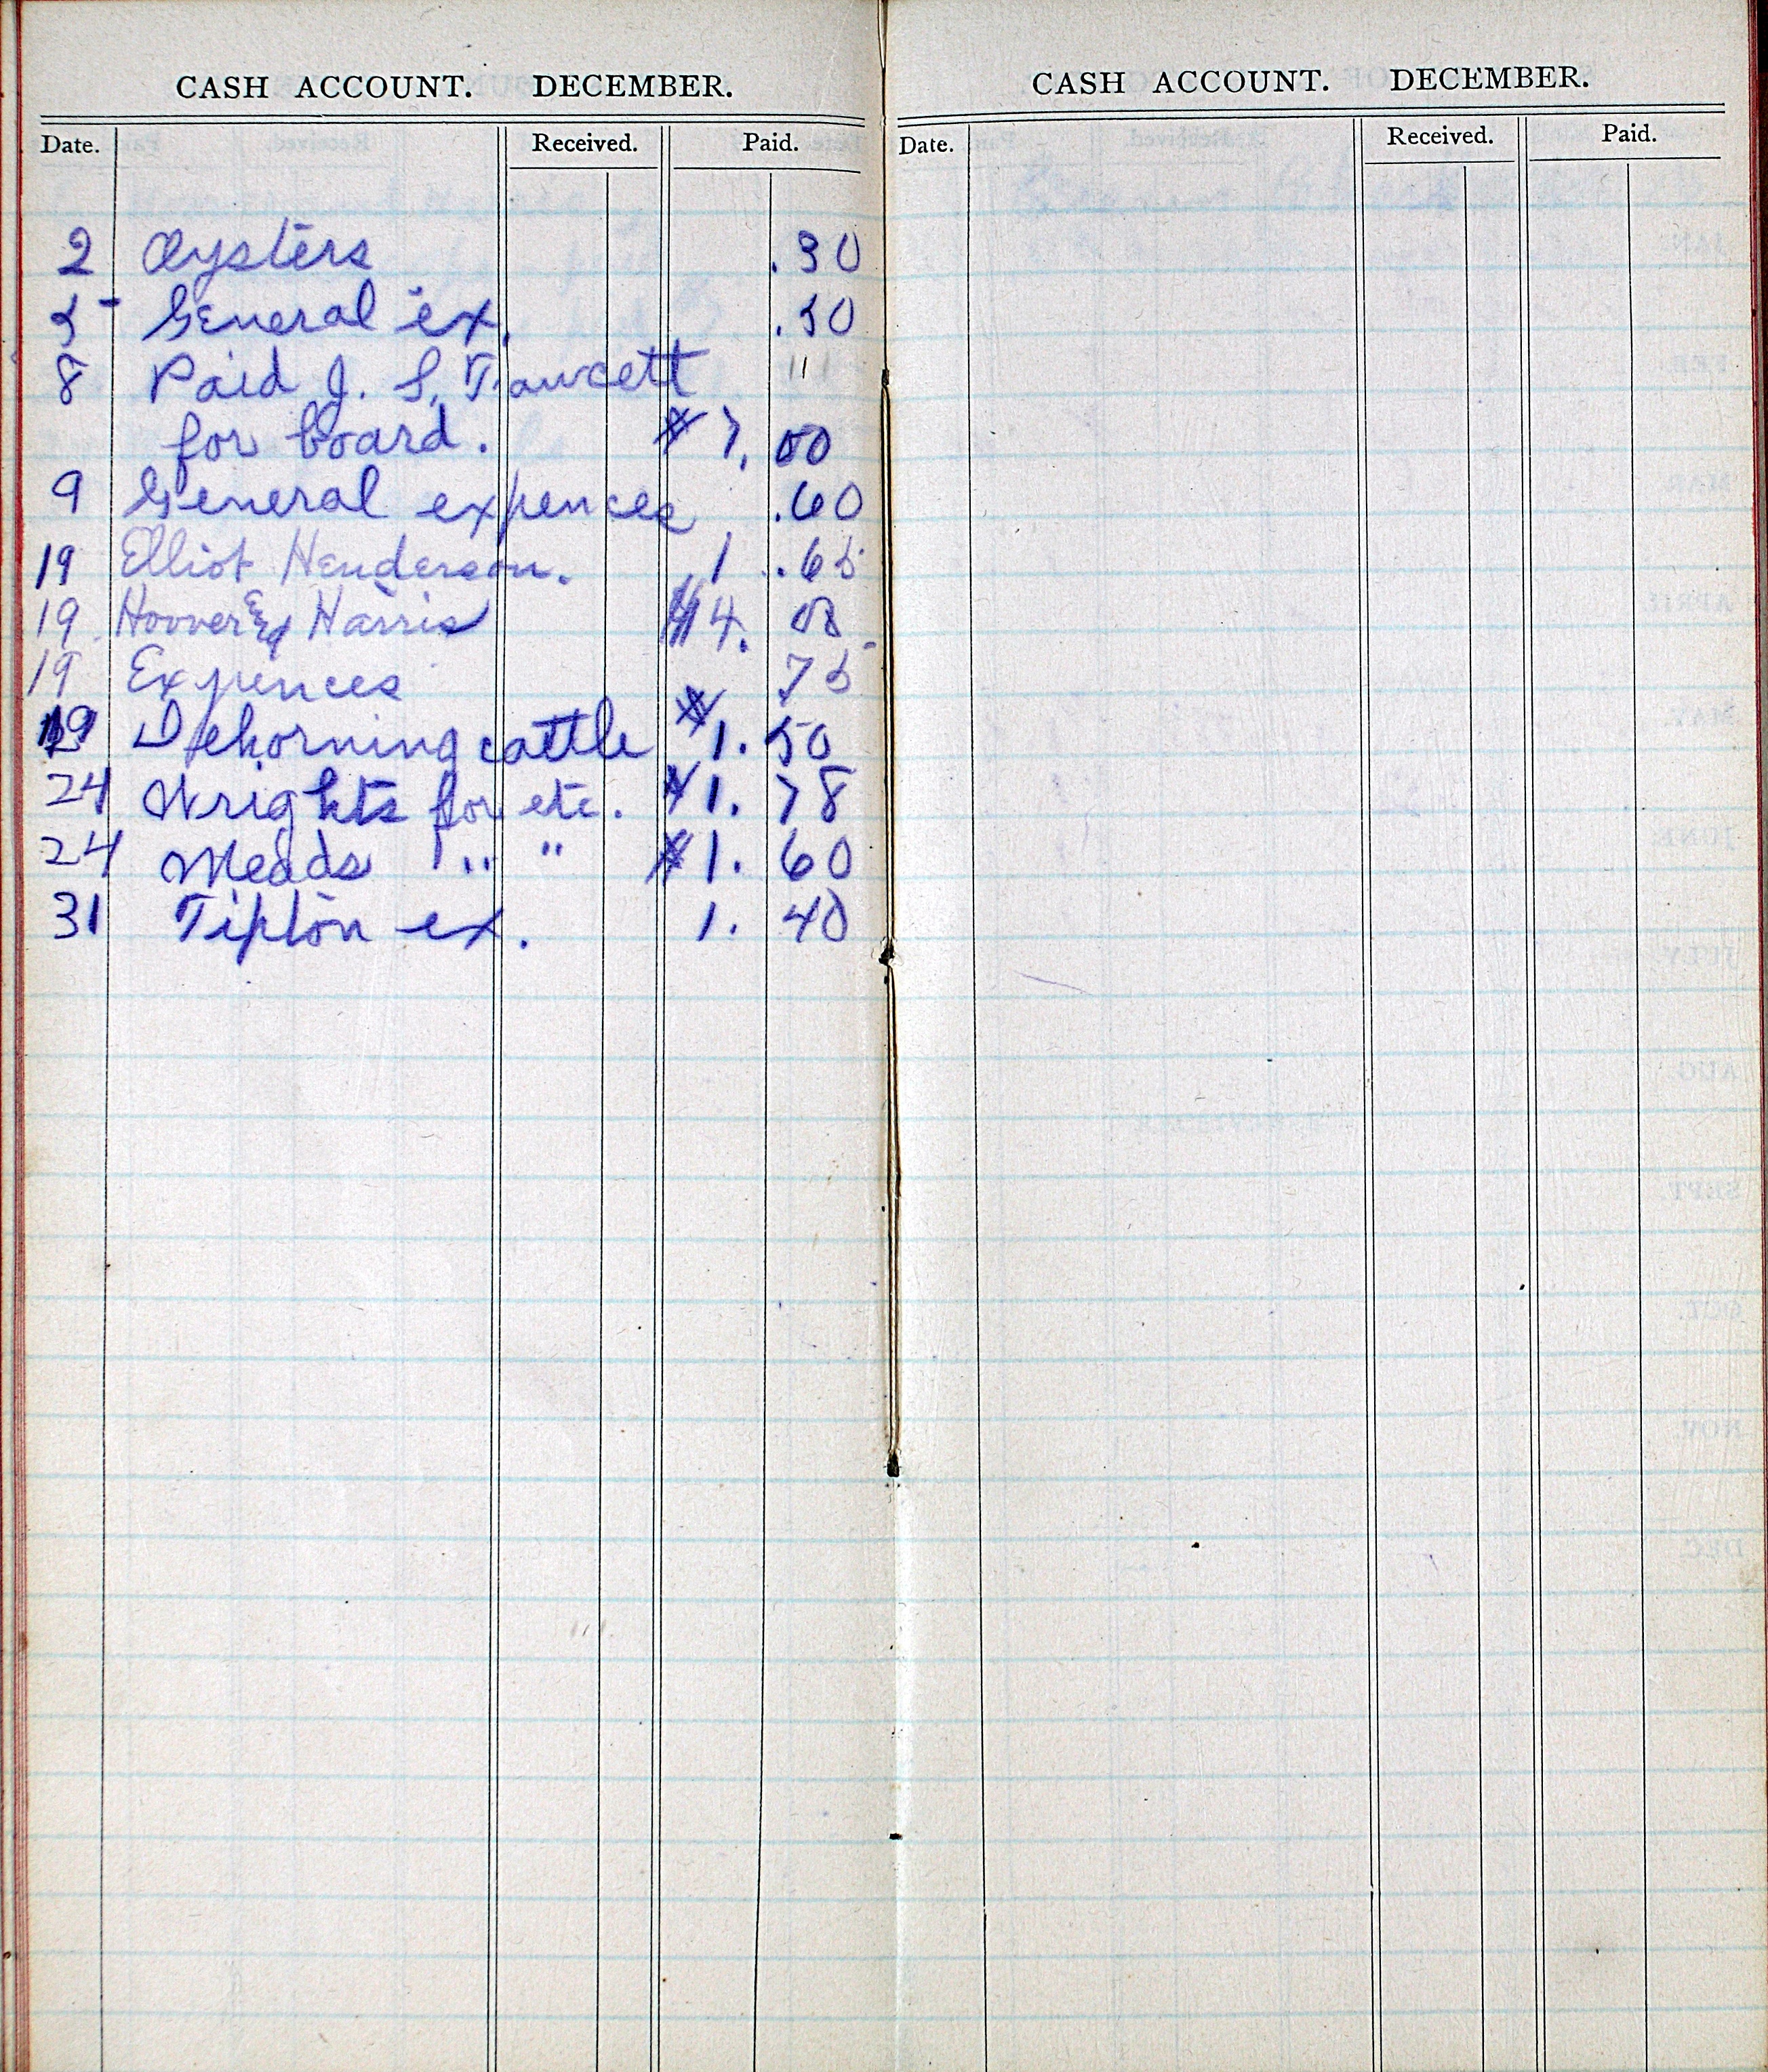 CASH ACCOUNT. DECEMBER.
Date. Received. Paid.
2 Oysters .30
5 General ex. .50
8 Paid J. S. Fawcett
for board. $7.00
9 General expences .60
19 Elliot Henderson. 1.65
19 Hoover & Harris $4.08
19 Expences 75
19 Dehorning cattle $1.50
24 Wrights for etc. $1.78
24 Meads " " $1.60
31 Tipton ex. 1.40
CASH ACCOUNT. DECEMBER.
Date. Received. Paid.